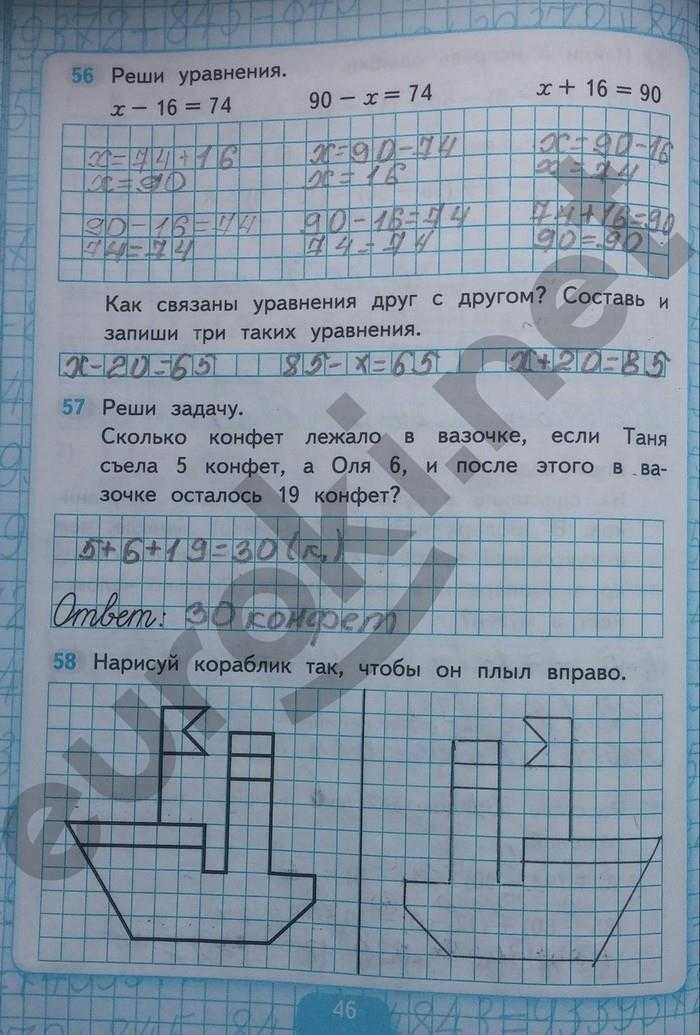 56 Реши уравнения.
x − 16 = 74 90 − x = 74 x + 16 = 90
x=74+16 x=90-74 x=90-16
x=90 x=16 x=74
90-16=74 90-16=74 74+16=90
74=74 74=74 90=90
Как связаны уравнения друг с другом? Составь и
запиши три таких уравнения.
x-20=65 85-x=65 x+20=85
57 Реши задачу.
Сколько конфет лежало в вазочке, если Таня
съела 5 конфет, а Оля 6, и после этого в ва-
зочке осталось 19 конфет?
5+6+19=30(к.)
Ответ: 30 конфет
58 Нарисуй кораблик так, чтобы он плыл вправо.
46
euroki.net